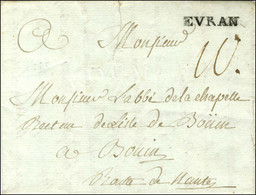 EVRAN
Monsieur
10
Monsieur L'abbé de la chapelle
Recteur de L'isle de Boüin
a Boüin
Route de Nante